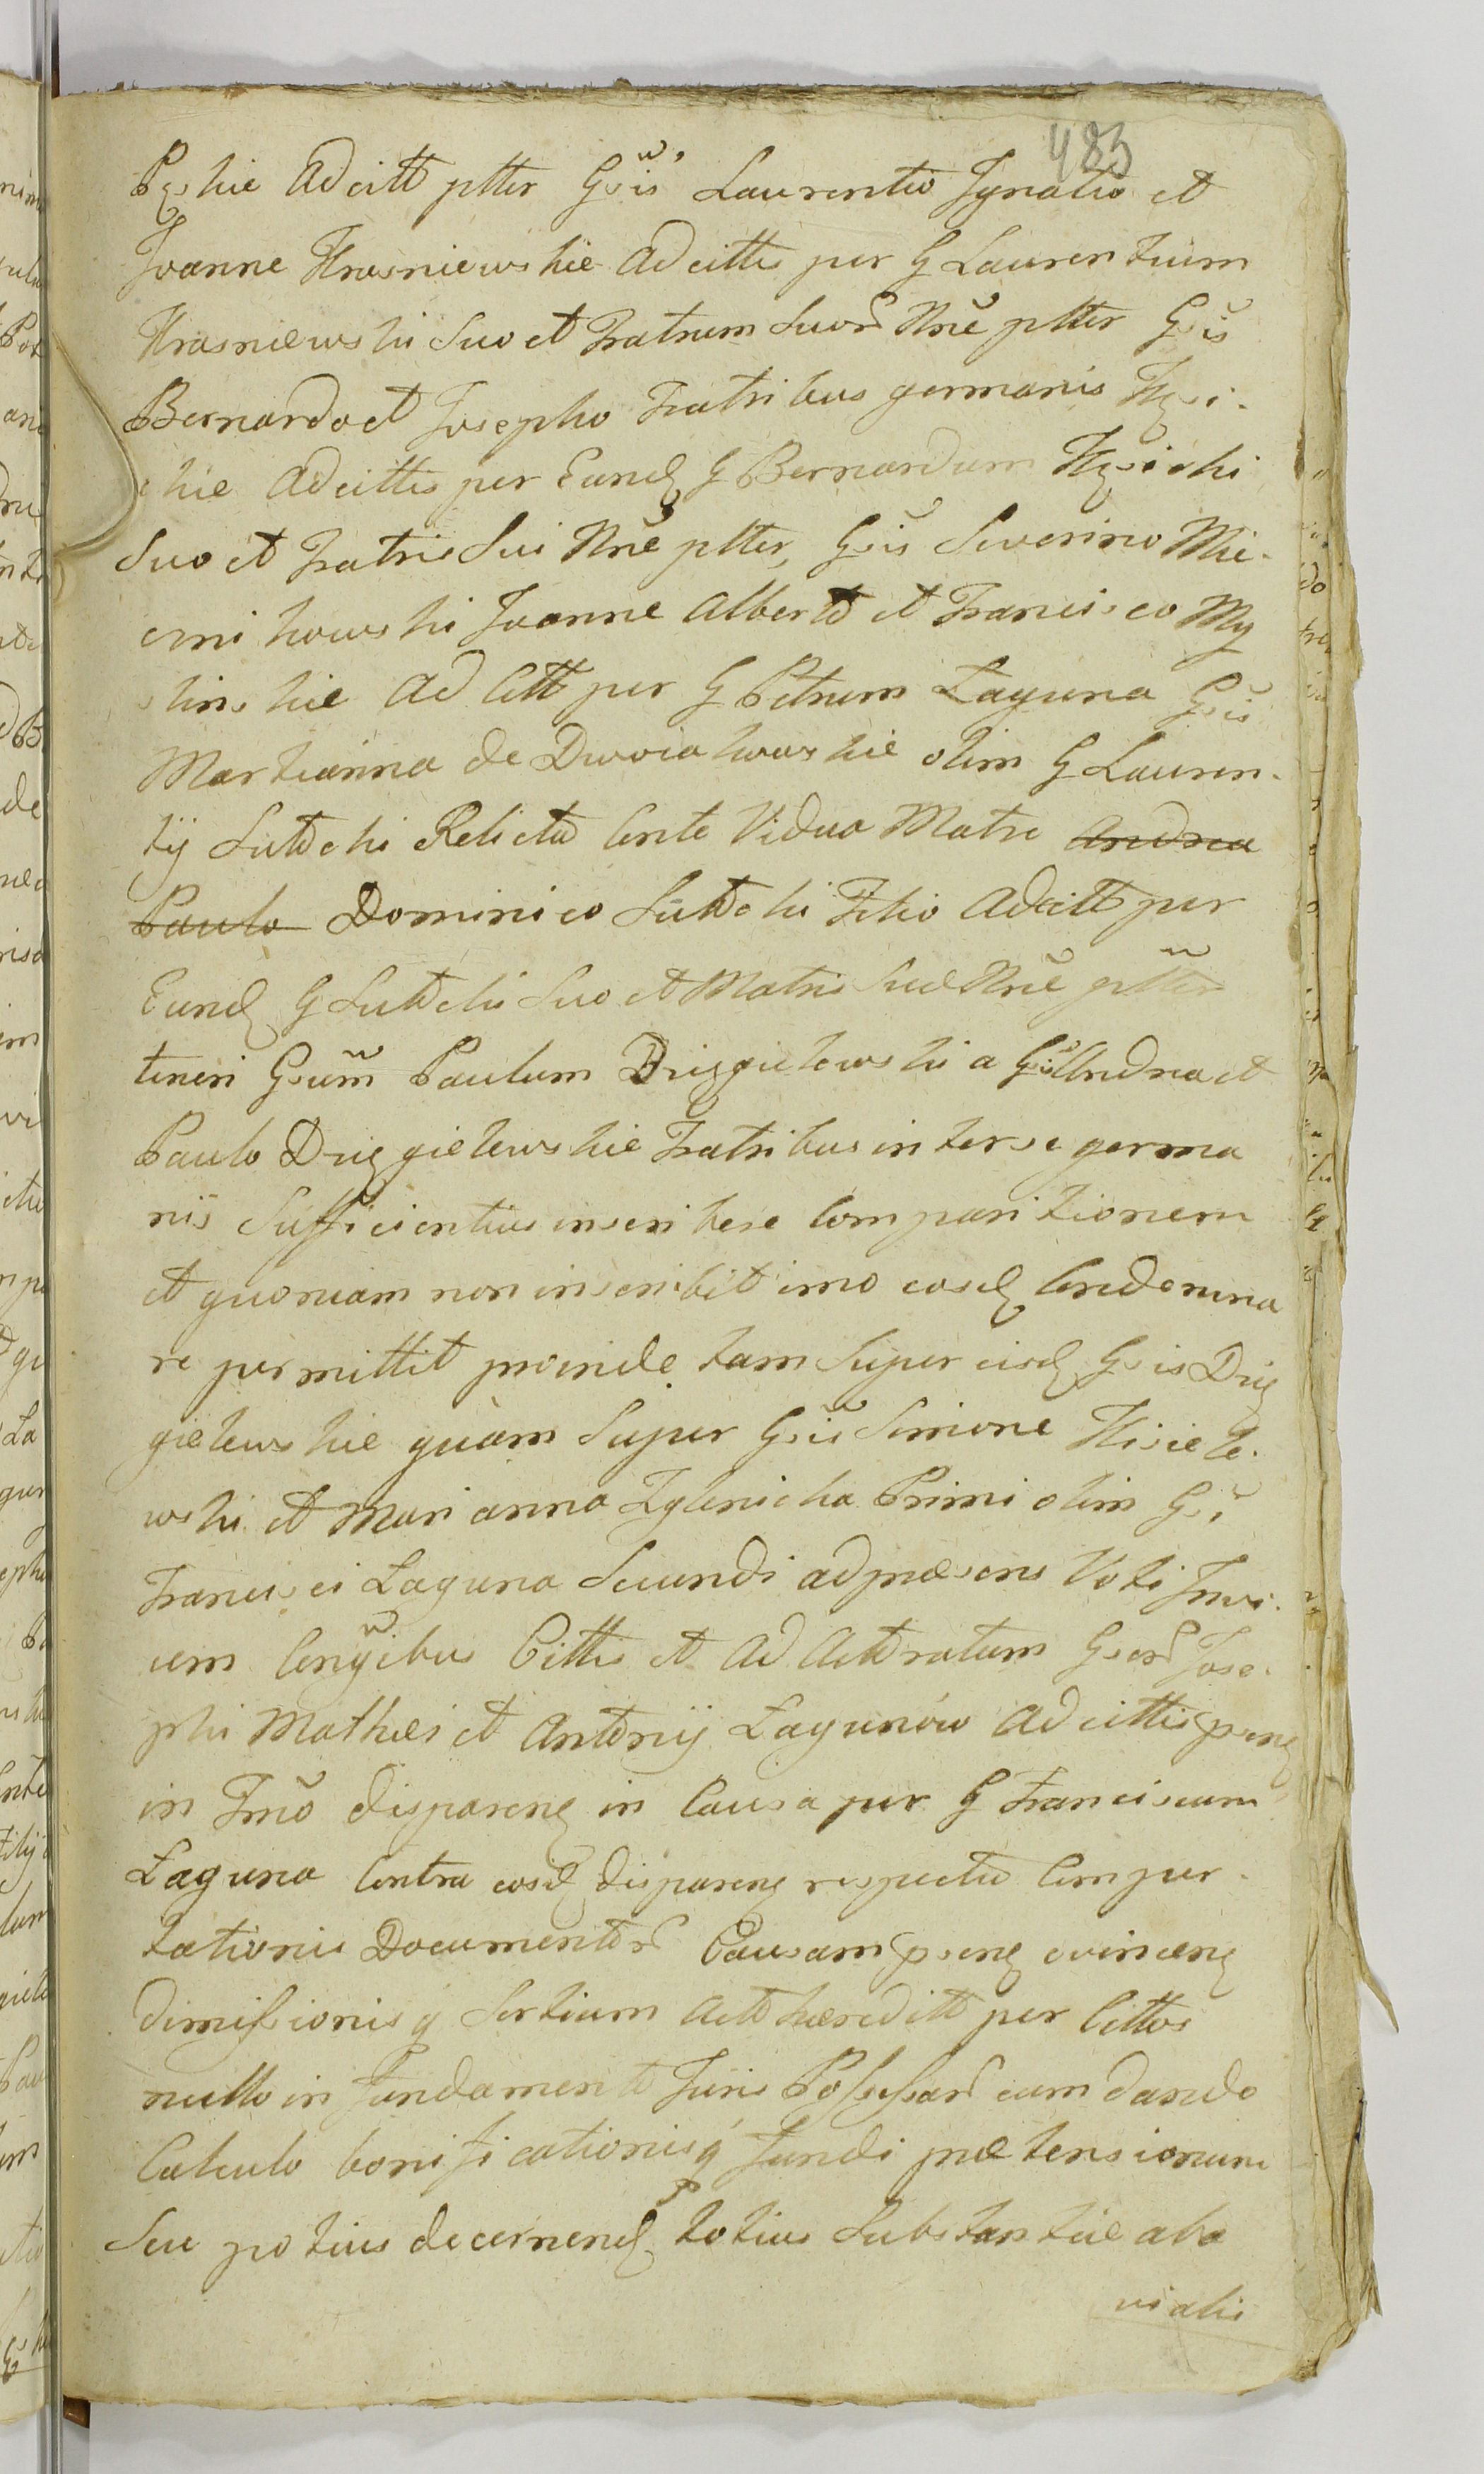 483
Pęskie Adcitt ptter Gsis Laurentio Ignatio et
Joanne Krasniewskie Adcittis per G Laurentium
Krasniewski Suo et Fratrum Suor Nne ptter Gsis
Bernardo et Josepho Fratribus germanis Kęsi-
ckie Adcittis per Eund G Bernardum Kęsicki
Suo et Fratris Sui Nne ptter, Gsis Severino Mie-
cznikowski Joanne Alberto et Francisco My
slinskie Ad Citt per G Petrum Łaguna Gsis
Martianna de Dwoiakowskie olim G Lauren-
tij Lutocki Relicta Cnte Vidua Matre Andrea
Paulo Dominico Lutocki Filio Adcitt per
Eund G Lutocki Suo et Matris Suæ Nne ptter
teneri Gsum Paulum Drięgielewski a Gsis Andrea et
Paulo Drięgielewskie Fratribus inter se germa
nis Sufficientius inscribere Comparitionem
et quoniam non inscribit imo eosd Condemna
re permittit proinde tam Super eisd Gsis Drię
gielewskie quam Super Gsis Simone Kisiele-
wski et Marianna Zglenicka Primi olim Gsi
Francisci Łaguna Secundi ad præsens Voti Invi-
cem Congibus Cittis et Ad Actoratum Gsor Jose-
phi Mathei et Antonij Łagunów Adcittis psens
in Tmno disparens in Causa per G Franciscum
Łaguna Contra eosd disparens respectu Compor-
tationis Documentor Causam psens evincens
dimissionisq Sortium Actt hæreditt per Cittos
nullo in fundamento Juris Possessar cum dando
Calculo bonificationisq fundi prætensionum
Seu potius decernend totius Substantiæ aba
vialis